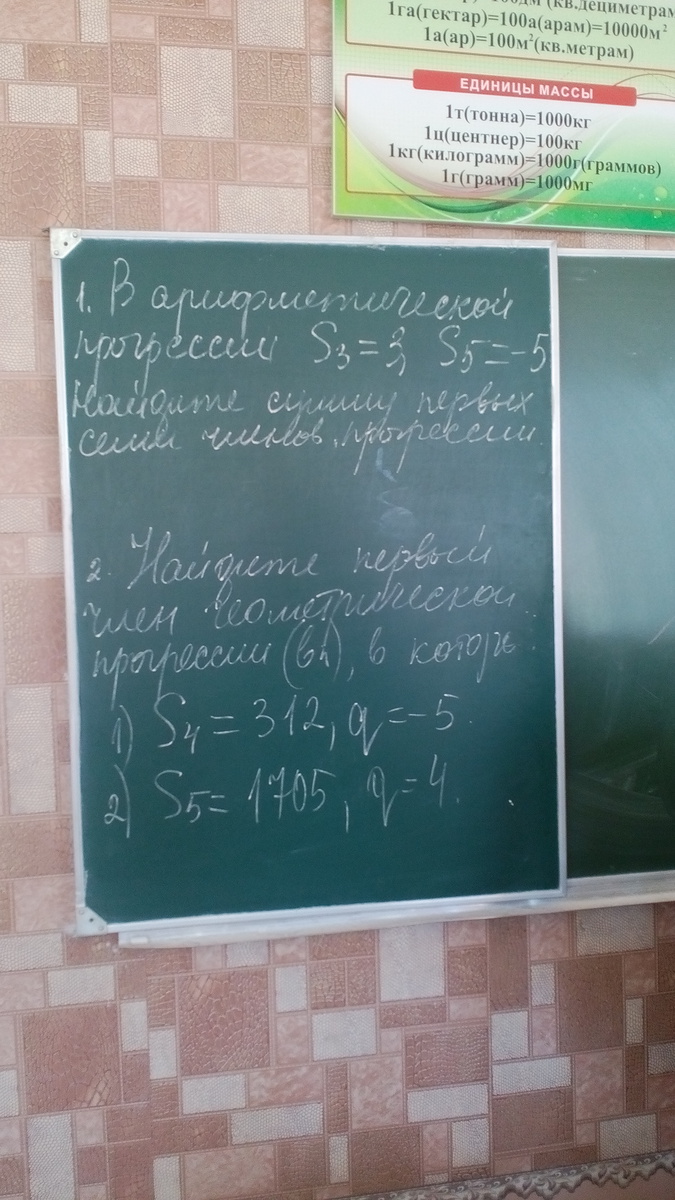 1га(гектар)=100а(арам)=10000м²
1а(ар)=100м²(кв.метрам)
ЕДИНИЦЫ МАССЫ
1т(тонна)=1000кг
1ц(центнер)=100кг
1кг(килограмм)=1000г(граммов)
1г(грамм)=1000мг
1. В арифметической
прогрессии S₃=3, S₅=-5
Найдите сумму первых
семи членов прогрессии.
2. Найдите первый
член геометрической
прогрессии (bn), в которо
1) S₄=312, q=-5.
2) S₅=1705, q=4.